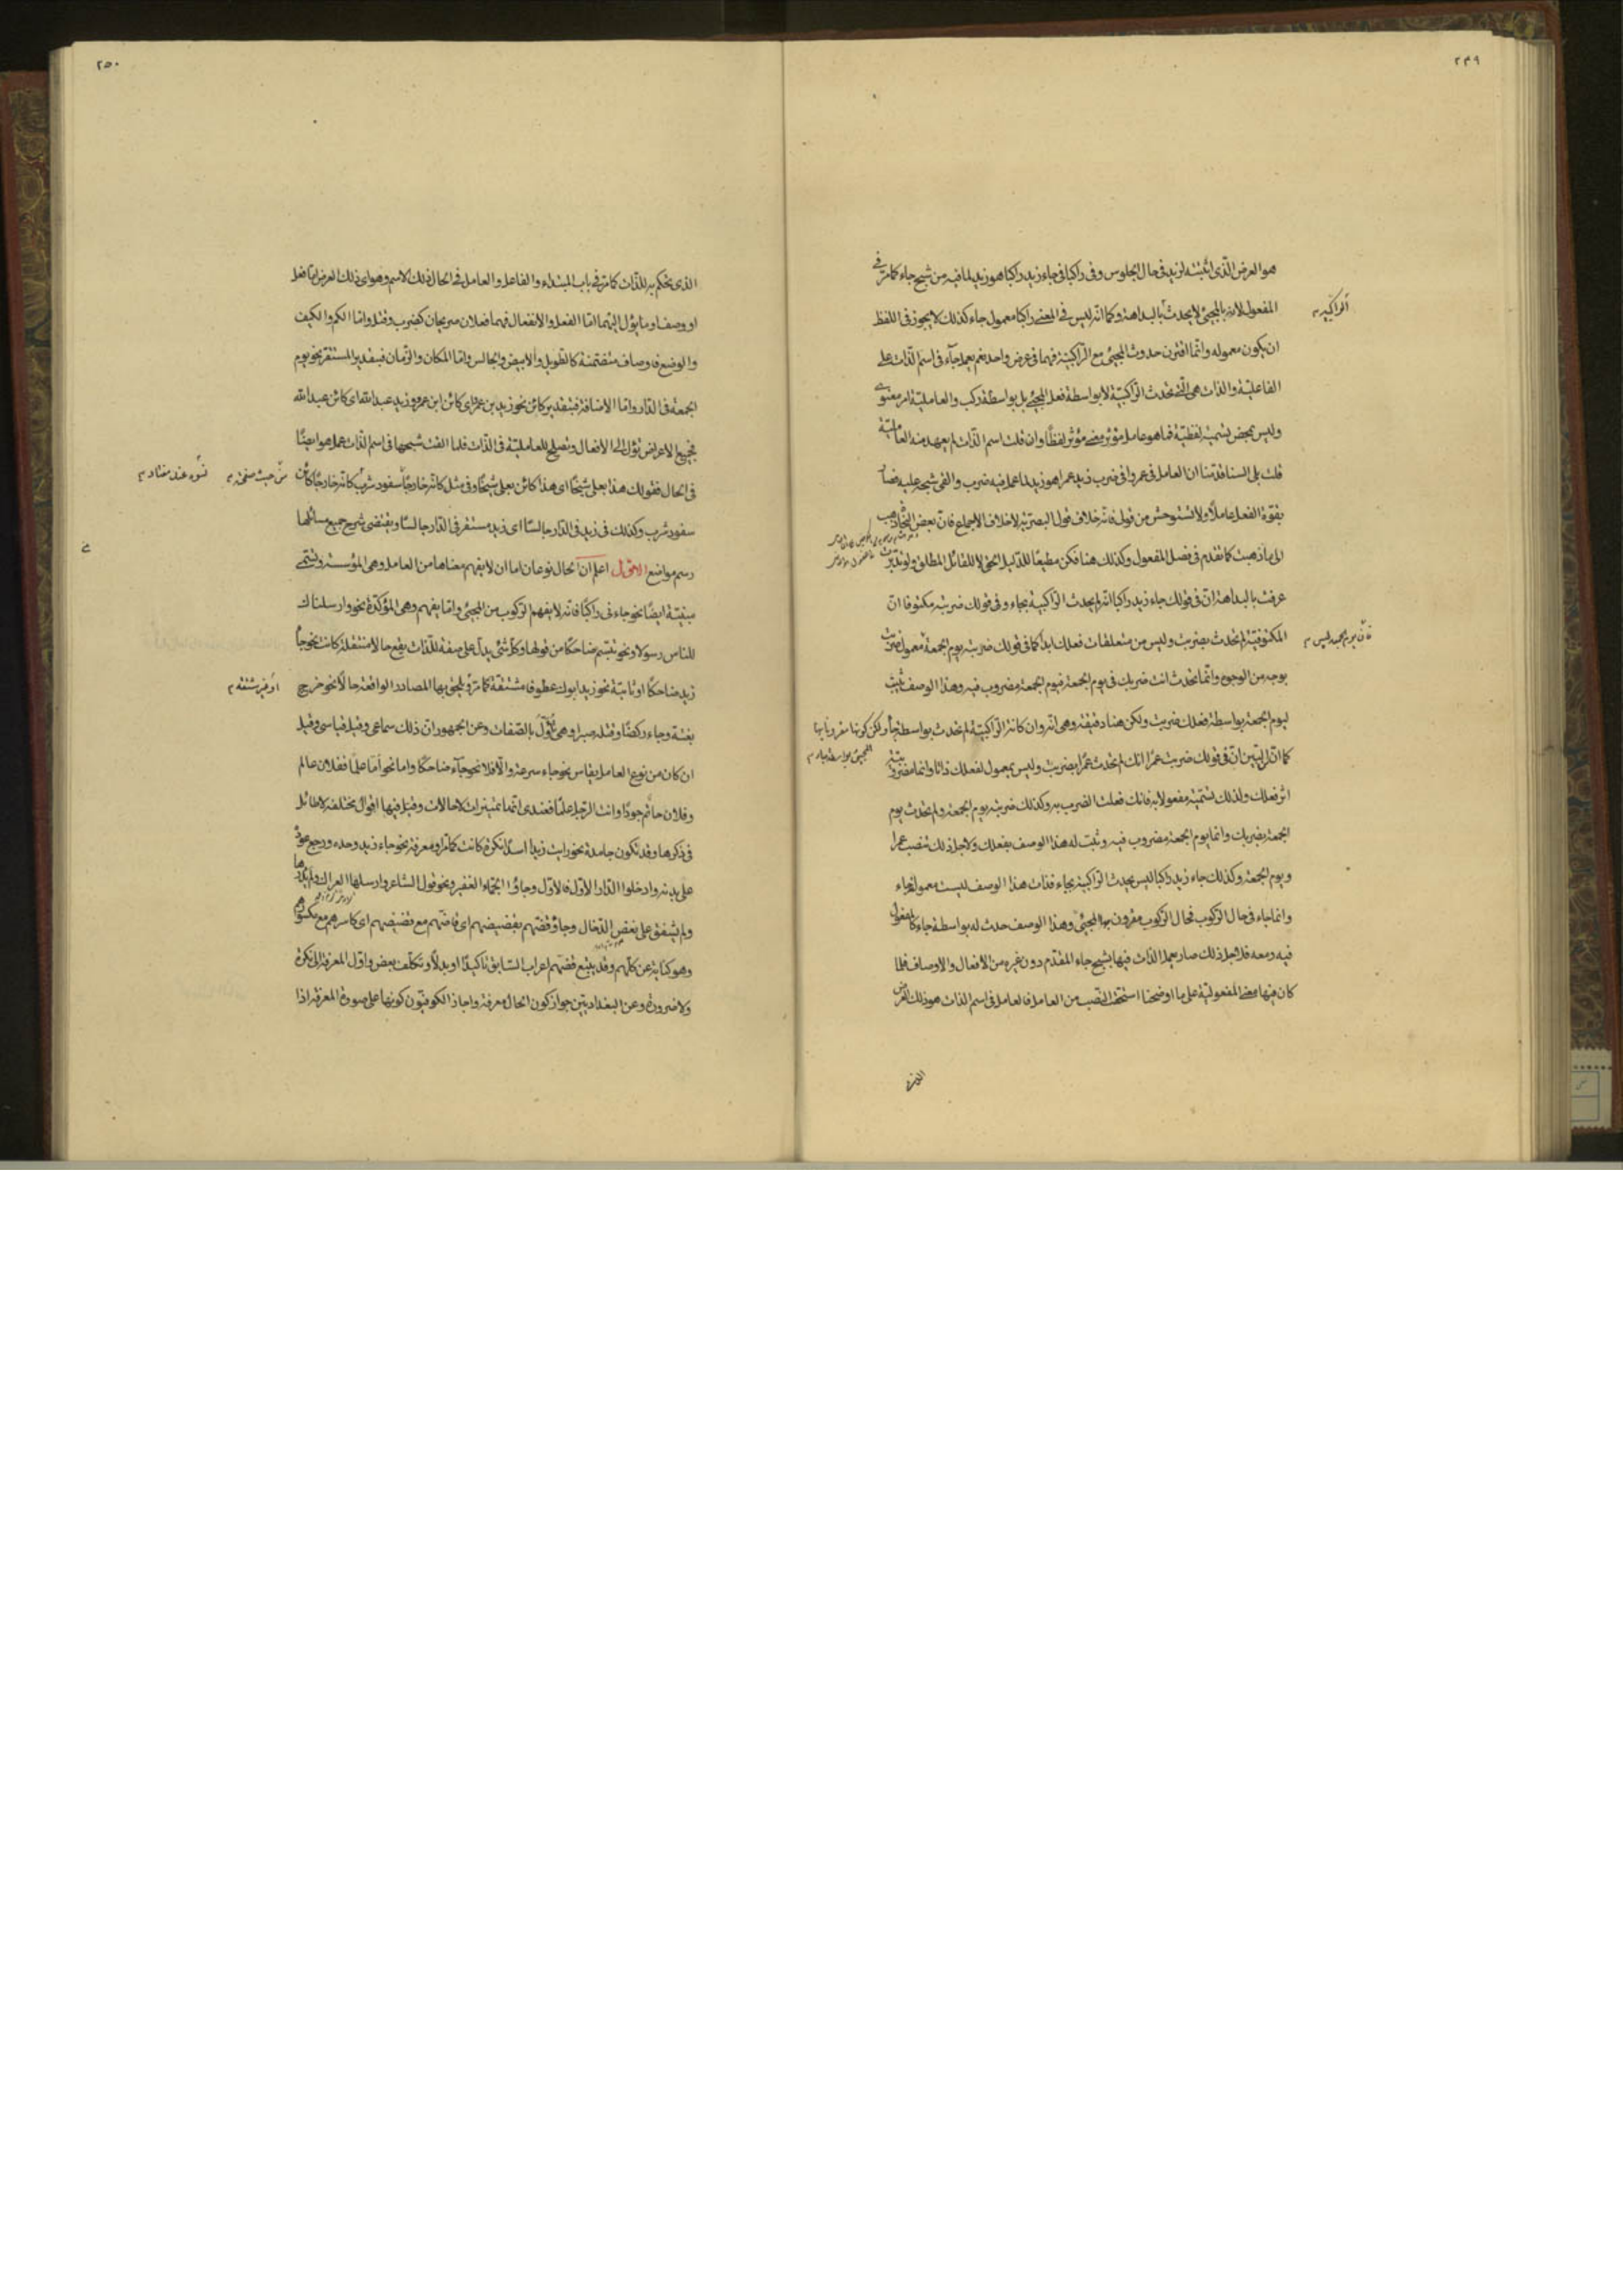 ٢٤٩
هو العرض الّذى اثبتّه لزيد فى حال الجلوس وفى راكبا فى جاء زيد راكبا هو زيد لما فيه من شبح جاء كما مرّ فى
المفعول لانه بالمجيئ لا يحدث بالبداهة وكما انّه ليس فى المعنى راكبا معمول جاء كذلك لا يجوز فى اللفظ
الراكبية
ان يكون معموله وانّما اقترن حدوث المجيئ مع الراكبية فهما فى عرض واحد نعم يعمل جاء فى اسم الذات على
الفاعليّة والذات هى الّتى تحدث الراكبيّة لا بواسطة فعل المجيئ بل بواسطة ركب والعاملية امر معنوى
وليس بمحض تسمية لفظيّة فما هو عامل مؤثر معنى مؤثر لفظًا وان قلت اسم الذات لم يعهد منه العاملية
قلت بلى السنا قد بيّنا ان العامل فى عمروا فى ضرب زيد عمرا هو زيد لما عمل فيه ضرب والقى شبحه عليه فصار
بقوة الفعل عاملًا ولا تستوحش من قولى فانّه خلاف قول البصريّة لا خلاف الاجماع فانّ بعض النحاة ذهب
الى ما ذهبت كما تقدم فى فصل المفعول وكذلك هنا فكن مطيعًا للدليل الحق لا للقائل المطلق ولو تدبّرت
عرفت بالبداهة انّ فى قولك جاء زيد راكبا انّه لم يحدث الراكبية بجاء وفى قولك ضربته مكتوفا انّ
المكتوفيّة لم تحدث بضربت وليس من متعلقات فعلك ابدا كما فى قولك ضربته يوم الجمعة معمول ضربت
فان يوم الجمعة ليس
بوجه من الوجوه وانّما تحدث انت ضربك فى يوم الجمعة فيوم الجمعة مضروب فيه وهذا الوصف ثبت
ليوم الجمعة بواسطة فعلك ضربت ولكن هنا دقيقة وهى انّه وان كانت الراكبيّة لم تحدث بواسطة جاء ولكن كونها مقرونا بها
المجيئ بواسطة جاء
كما انّك ل انّ فى قولك ضربت عمرًا انّك لم تحدث عمرًا بضربت وليس بمعمول لفعلك ذاتا وانما مضروبيّته
اثر فعلك ولذلك تسمّيه مفعولا به فانك فعلت الضرب به وكذلك ضربته يوم الجمعة ولم تحدث يوم
الجمعة بضربك وانما يوم الجمعة مضروب فيه وثبت له هذا الوصف بفعلك ولاجل ذلك تنصب عمرا
ويوم الجمعة وكذلك جاء زيد راكبا ليس يحدث الراكبية بجاء فذات هذا الوصف ليست معمولة لجاء
وانما جاء فى حال الركوب فحال الركوب مقرون بها المجيئ وهذا الوصف حدث له بواسطة جاء كالمفعول
فيه ومعه فلاجل ذلك صار يعمل الذات فيها بشبح جاء المقدّم دون غيره من الافعال والاوصاف فلما
كان فيها معنى المفعولية على ما اوضحنا استحقت النصب من العامل فالعامل فى اسم الذات هو ذلك العرض
الذى
٢٥٠
الذى يحكم به للذات كما مرّ فى باب المبتداء والفاعل والعامل فى الحال ذلك الاسم وهو اى ذلك العرض امّا فعل
او وصف او ما يؤل اليهما امّا الفعل والانفعال فهما فعلان صريحان كضرب وقتل وامّا الكم والكيف
والوضع فاوصاف متضمنة كالطويل والابيض والجالس وامّا المكان والزمان فبتقدير المستقر نحو يوم
الجمعة فى الدار وامّا الاضافة فبتقدير كائن نحو زيد بن عمرو اى كائن ابن عمرو وزيد عبد الله اى كائن عبد الله
فجميع الاعراض تؤل الى الافعال وتصلح للعاملية فى الذات فلما القت شبحها فى اسم الذات عمل هو ايضًا
فى الحال فقولك هذا بعلى شيخًا اى هذا كائن بعلى شيخًا وفى مثل كانّه خارجًا سفود شرب كانّه خارجًا كائن
سفود شرب وكذلك فى زيد فى الدار جالسًا اى زيد مستقر فى الدار جالسًا ويقتضى شرح جميع مسائلها
رسم مواضع الاوّل اعلم ان الحال نوعان اما ان لا يفهم معناها من العامل وهى المؤسّسة وتسمّى
مبيّنة ايضًا نحو جاءنى راكبًا فانّه لا يفهم الركوب من المجيئ وامّا يفهم وهى المؤكّدة نحو وارسلناك
للناس رسولا ونحو تبسّم ضاحكًا من قولها وكلّ شئ يدلّ على صفة للذات يقع حالا منتقلة كانت نحو جاء
زيد ضاحكًا او ثابتة نحو زيد ابوك عطوفا مشتقة كما مرّ ويلحق بها المصادر الواقعة حالًا نحو خرج
او غير مشتقة
بغتة وجاء ركضًا وقتله صبرا وهى تؤوّل بالصّفات وعن الجمهور ان ذلك سماعى وقيل قياسى وقيل
ان كان من نوع العامل يقاس نحو جاء سرعة والّا فلا نحو جاء ضاحكًا واما نحو امّا علمًا ففلان عالم
وفلان حاتم جودًا وانت الرجل علمًا فعندى انّما تمييزات لا حالات وقيل فيها اقوال مختلفة لا طائل
فى ذكرها وقد تكون جامدة نحو رايت زيدا اسدًا نكرة كانت كما مرّ او معرفة نحو جاء زيد وحده ورجع عوده
على بدئه وادخلوا الدار الاوّل فالاوّل وجاؤا الجمّاء الغفير ونحو قول الشاعر وارسلها العراك ولم يذدها
ولم يشفق على نغص الدخال وجاؤا قضّهم بقضيضهم اى قاضّهم مع قضيضهم اى كاسرهم مع مكسورهم
وهو كناية عن كلّهم وقد يتبع قضّهم اعراب السابق تاكيدًا او بدلًا وتكلّف بعض واوّل المعرفة الى نكرة
ولا ضرورة وعن البغداديّين جواز كون الحال معرفة واجاز الكوفيّون كونها على صورة المعرفة اذا